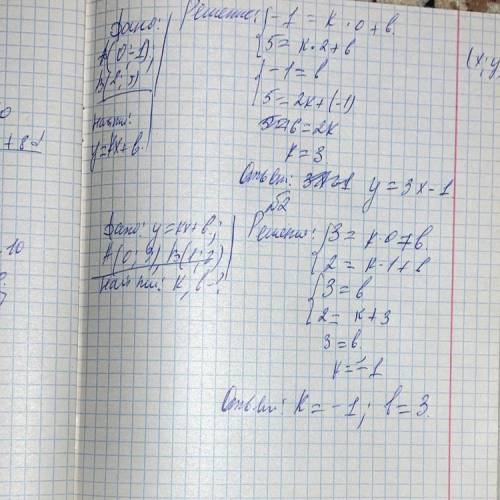 Дано:
A(0;-1),
B(2;5)
Найти:
y=kx+b.
Решение:
-1 = k·0+b.
5=k·2+b
-1=b
5=2k+(-1)
6=2k
k=3
Ответ: y=3x-1
№2
Дано: y=kx+b;
A(0;3) B(1;2)
Найти: k, b-?
Решение:
3= k·0+b
2= k·1+b
3=b
2= k+3
3=b.
k=-1
Ответ: k=-1; b=3.
(x;y
+8d
10